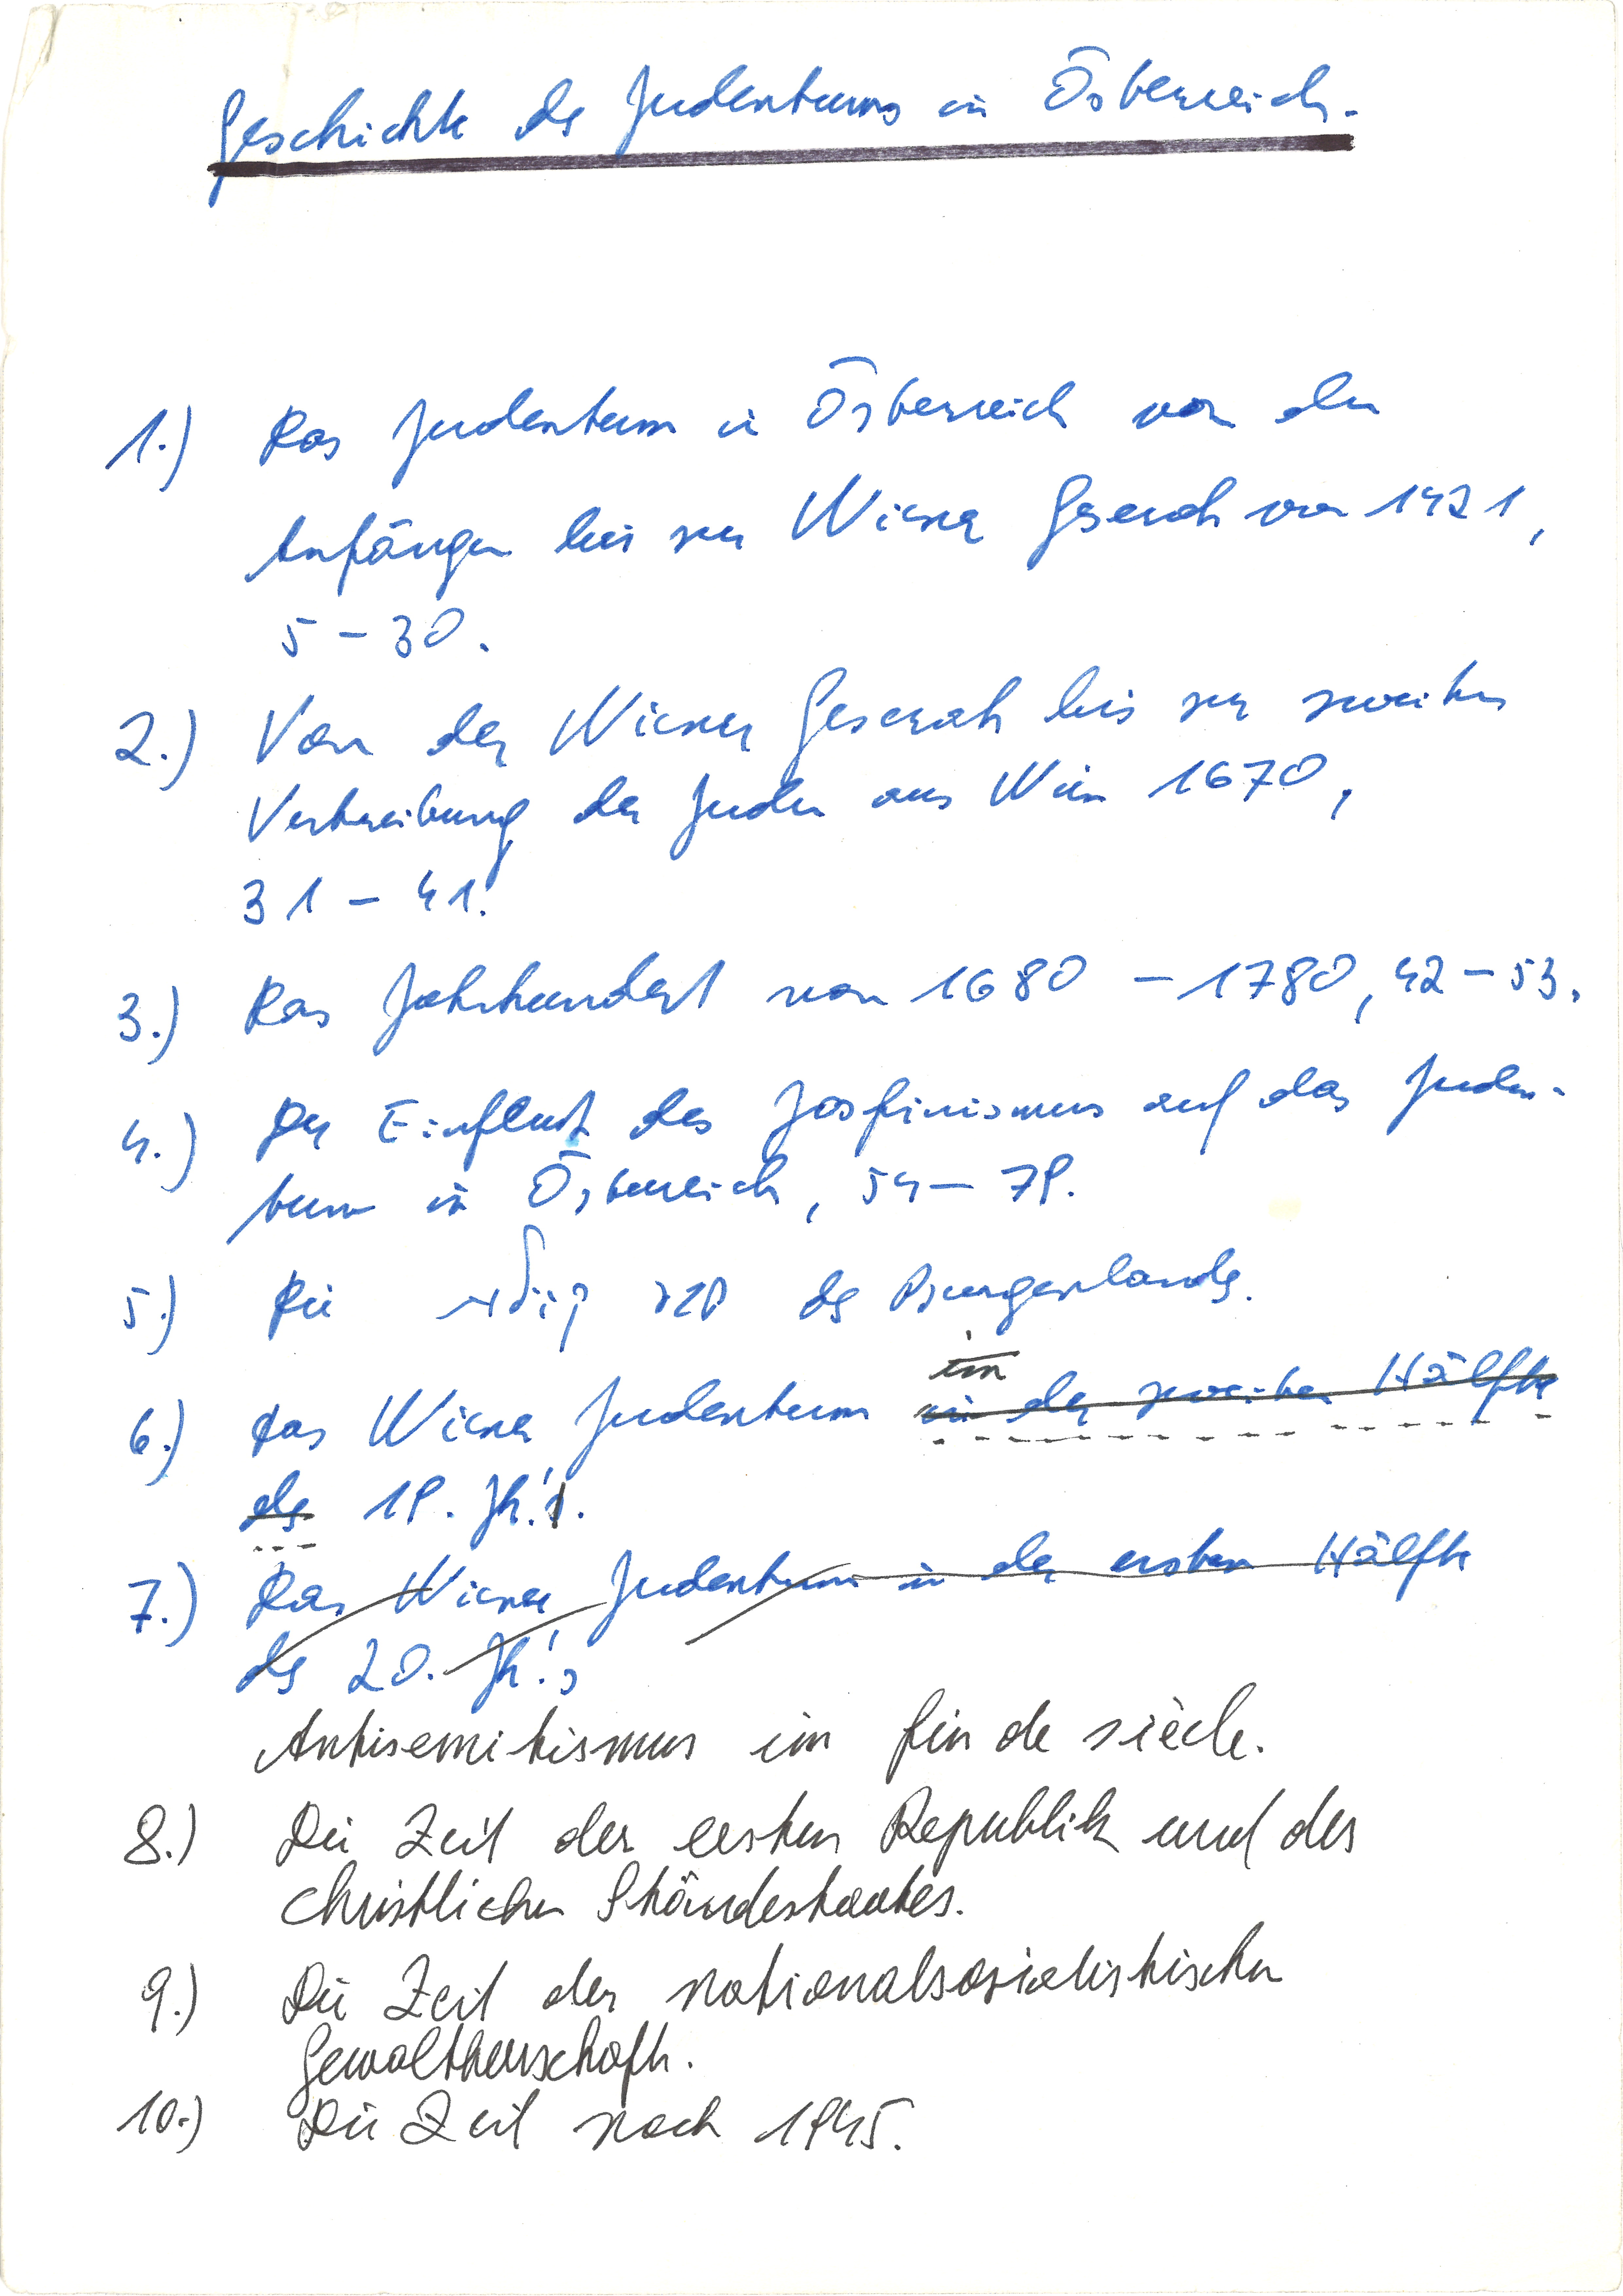 Geschichte des Judentums in Österreich.
1.) Das Judentum in Österreich von den
Anfängen bis zur Wiener Geserah von 1421,
5 – 30.
2.) Von der Wiener Geserah bis zur zweiten
Vertreibung der Juden aus Wien 1670,
31 – 41.
3.) Das Jahrhundert von 1680 – 1780, 42 – 53.
4.) Der Einfluß des Josfinismus auf das Juden-
tum in Österreich, 54 – 79.
5.) Die שבע קהילות des Burgenlands.
im
6.) Das Wiener Judentum in der zweiten Hälfte
des 19. Jh.'s.
7.) Das Wiener Judentum in der ersten Hälfte
des 20. Jh.'s
Antisemitismus im fin de siècle.
8.) Die Zeit der ersten Republik und des
christlichen Ständestaates.
9.) Die Zeit der nationalsozialistischen
Gewaltherrschaft.
10.) Die Zeit nach 1945.